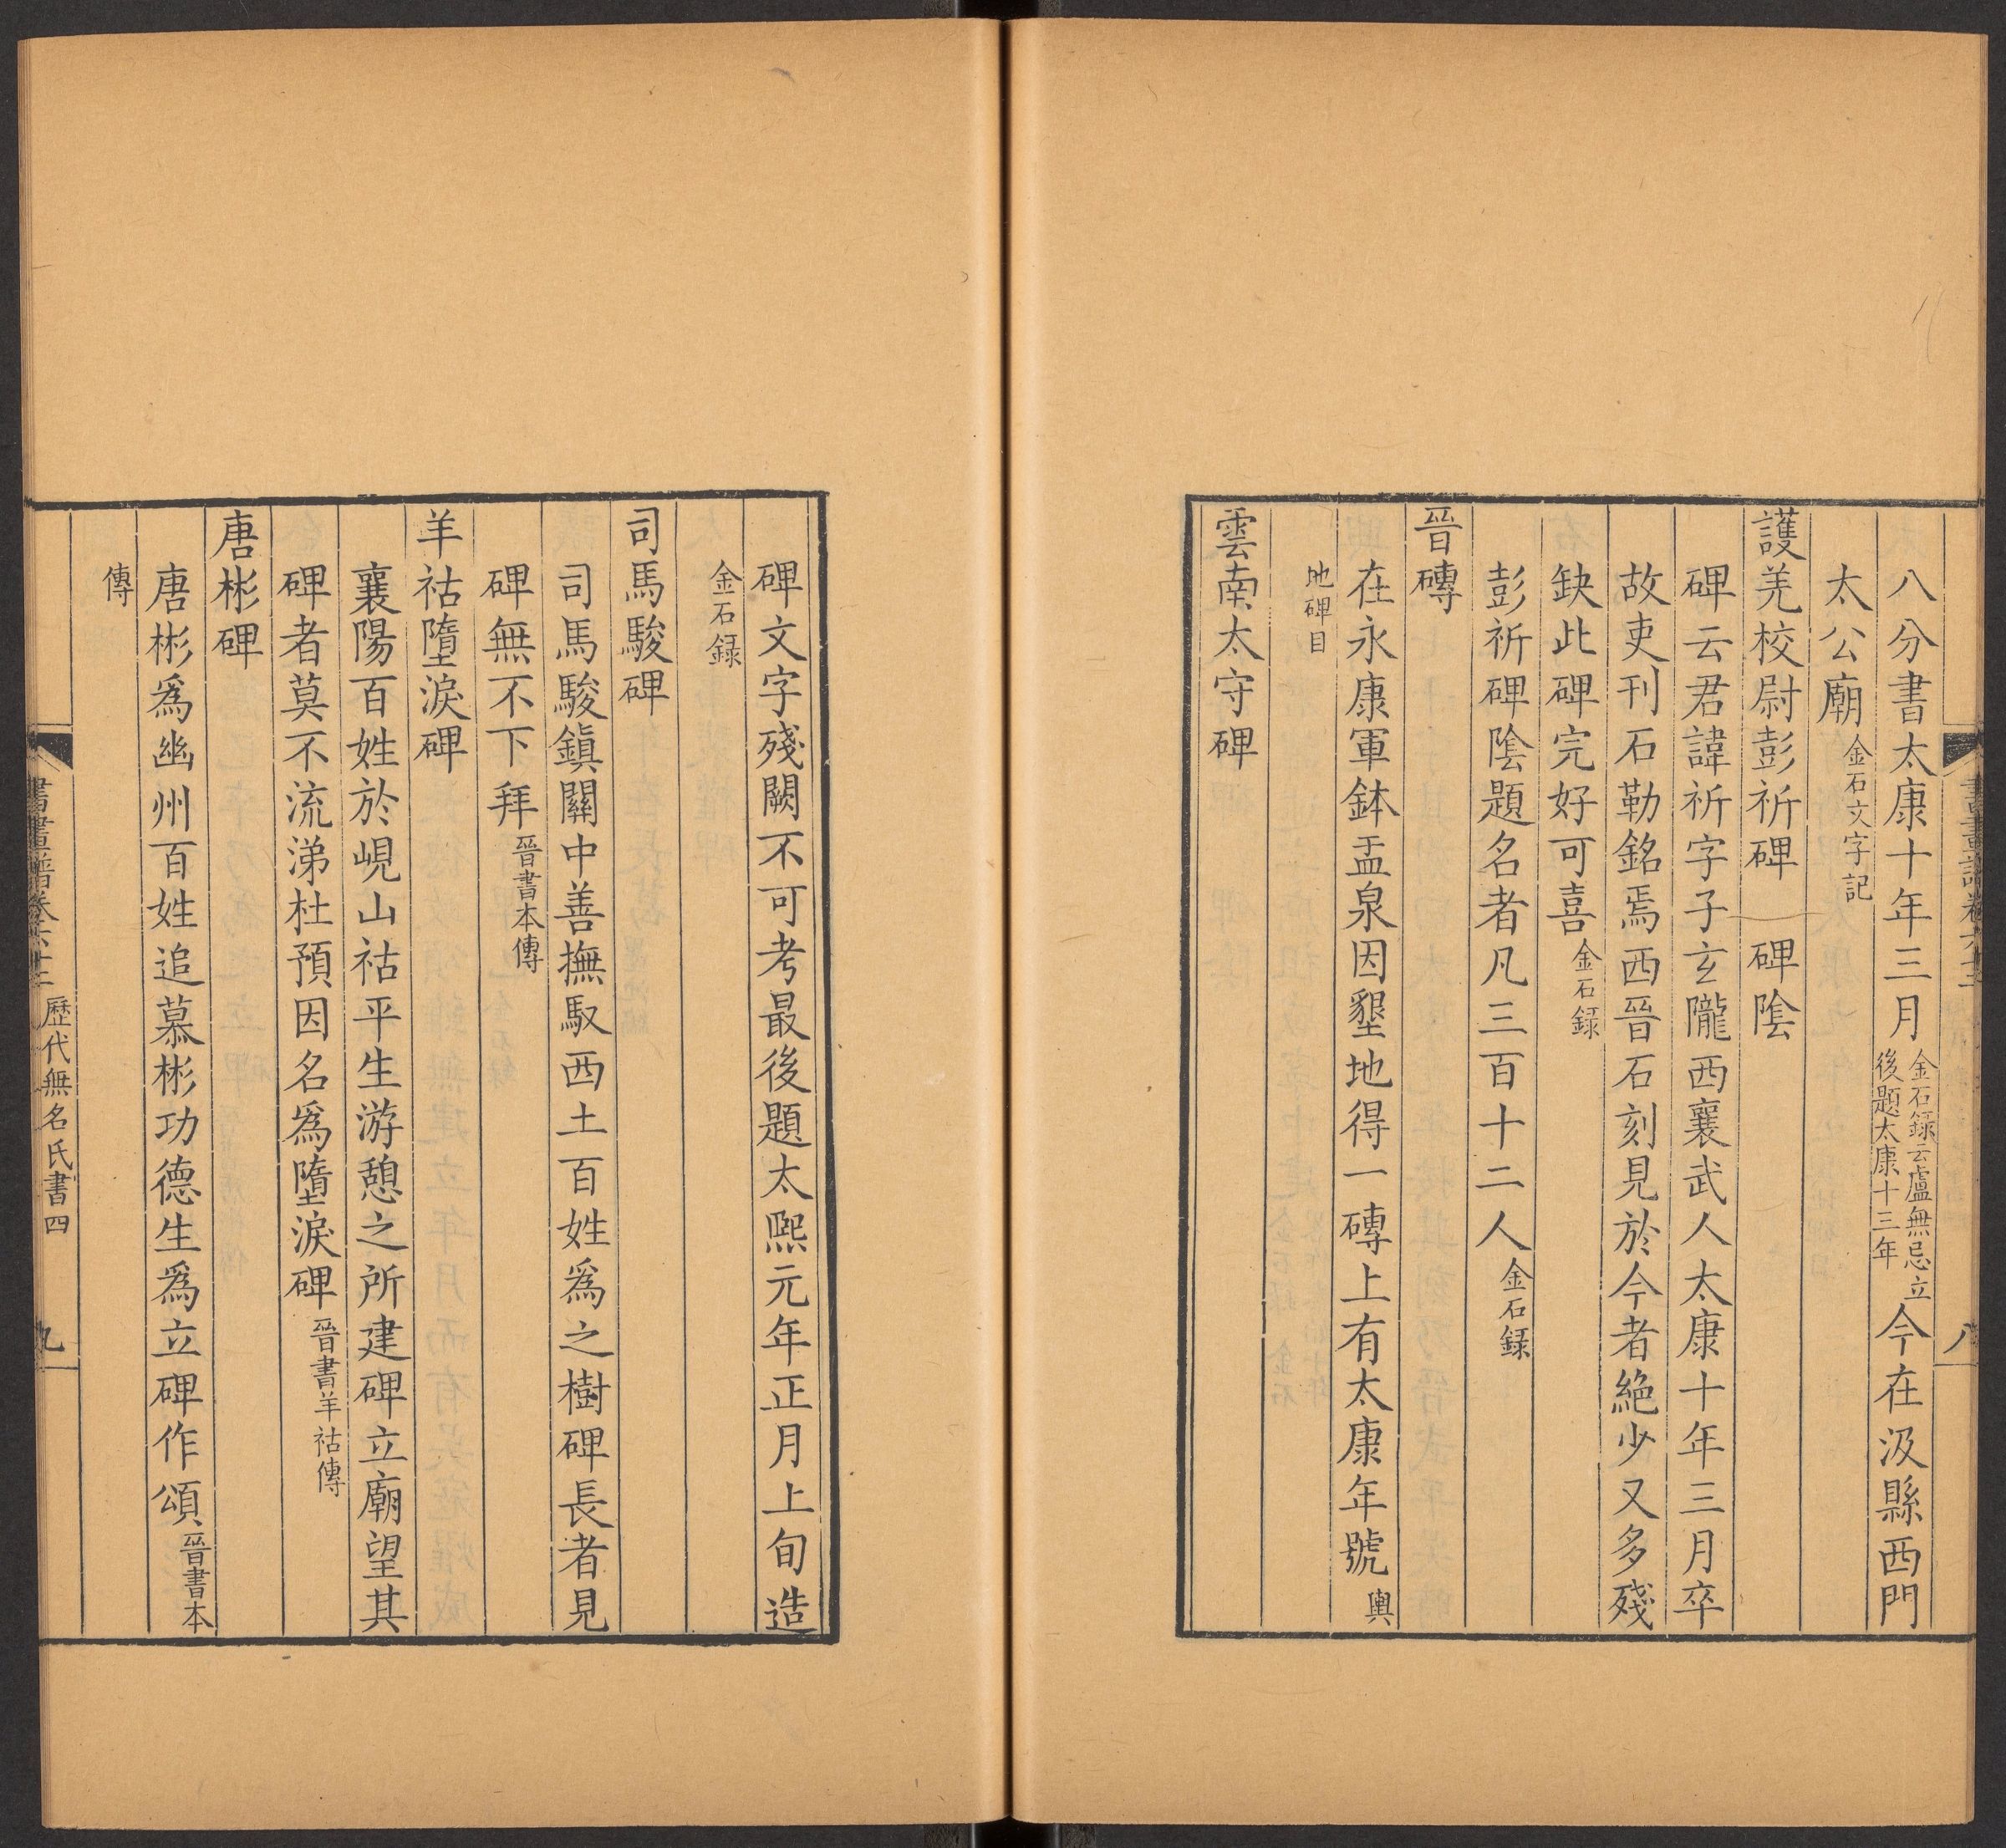 八分書太康十年三月金石錄云盧無忌立後題太康十三年今在汲縣西門
太公廟金石文字記
護羌校尉彭祈碑　碑陰
碑云君諱祈字子玄隴西襄武人太康十年三月卒
故吏刊石勒銘焉西晉石刻見於今者絶少又多殘
缺此碑完好可喜金石録
彭祈碑陰題名者凡三百十二人金石録
晉磚
在永康軍鉢盂泉因墾地得一磚上有太康年號輿
地碑目
雲南太守碑
碑文字殘闕不可考最後題太熙元年正月上旬造
金石録
司馬駿碑
司馬駿鎮關中善撫馭西土百姓爲之樹碑長者見
碑無不下拜晉書本傳
羊祜墮淚碑
襄陽百姓於峴山祜平生游憩之所建碑立廟望其
碑者莫不流涕杜預因名爲墮淚碑晉書羊祜傳
唐彬碑
唐彬爲幽州百姓追慕彬功德生爲立碑作頌晉書本
傳
歷代無名氏書四
九